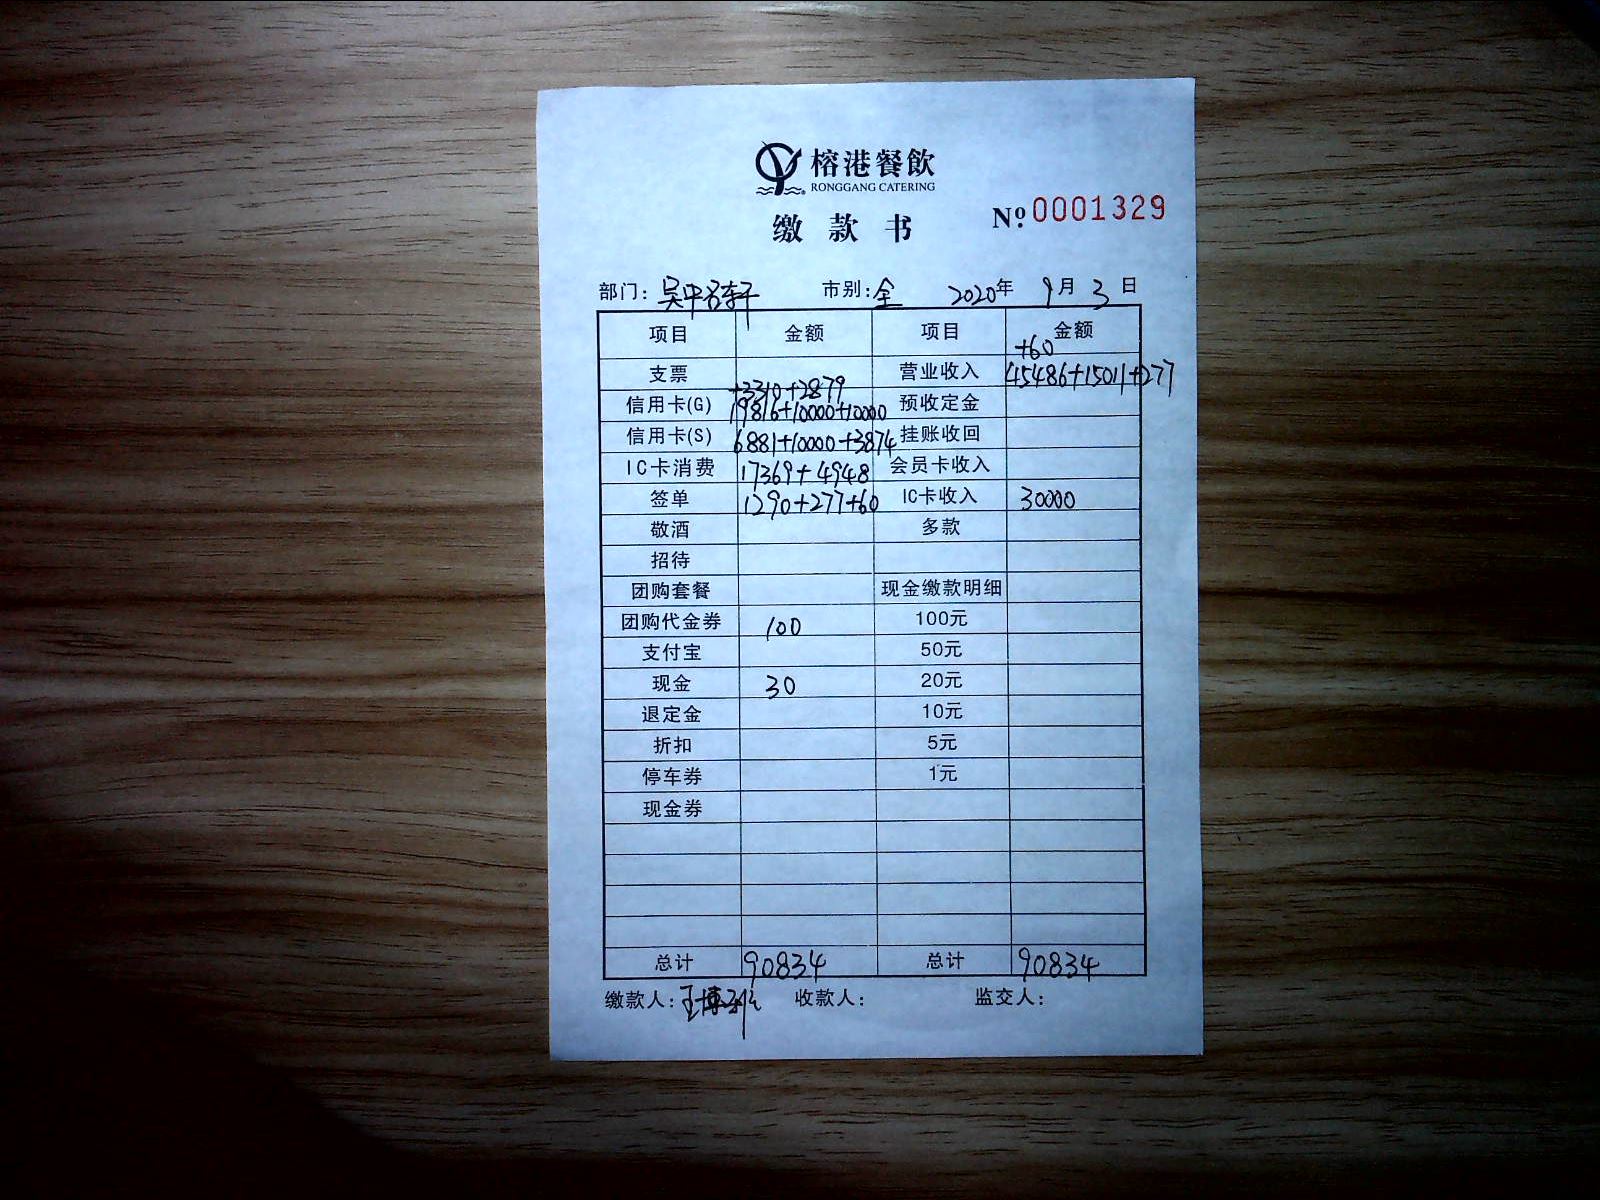 榕港餐飲
RONGGANG CATERING
缴款书 Nº 0001329
部门：吴中名轩 市别：全 2020年 9月 3日
项目 金额 项目 金额
+60
支票 营业收入 45486+15011+277
+3310+2879
信用卡(G) 19816+10000+10000 预收定金
信用卡(S) 6881+10000+3874 挂账收回
IC卡消费 17369+4948 会员卡收入
签单 1290+277+60 IC卡收入 30000
敬酒 多款
招待
团购套餐 现金缴款明细
团购代金券 100 100元
支付宝 50元
现金 30 20元
退定金 10元
折扣 5元
停车券 1元
现金券
总计 90834 总计 90834
缴款人：王博 收款人： 监交人：